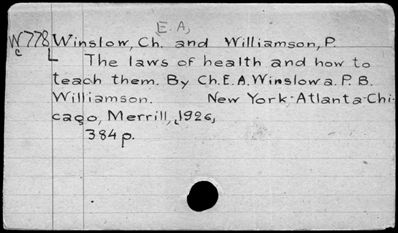 E. A.
W778 Winslow, Ch. and Williamson, P.
c L The laws of health and how to
teach them. By Ch. E. A. Winslow a. P. B.
Williamson. New York-Atlanta-Chi-
cago, Merrill, 1926,
384 p.